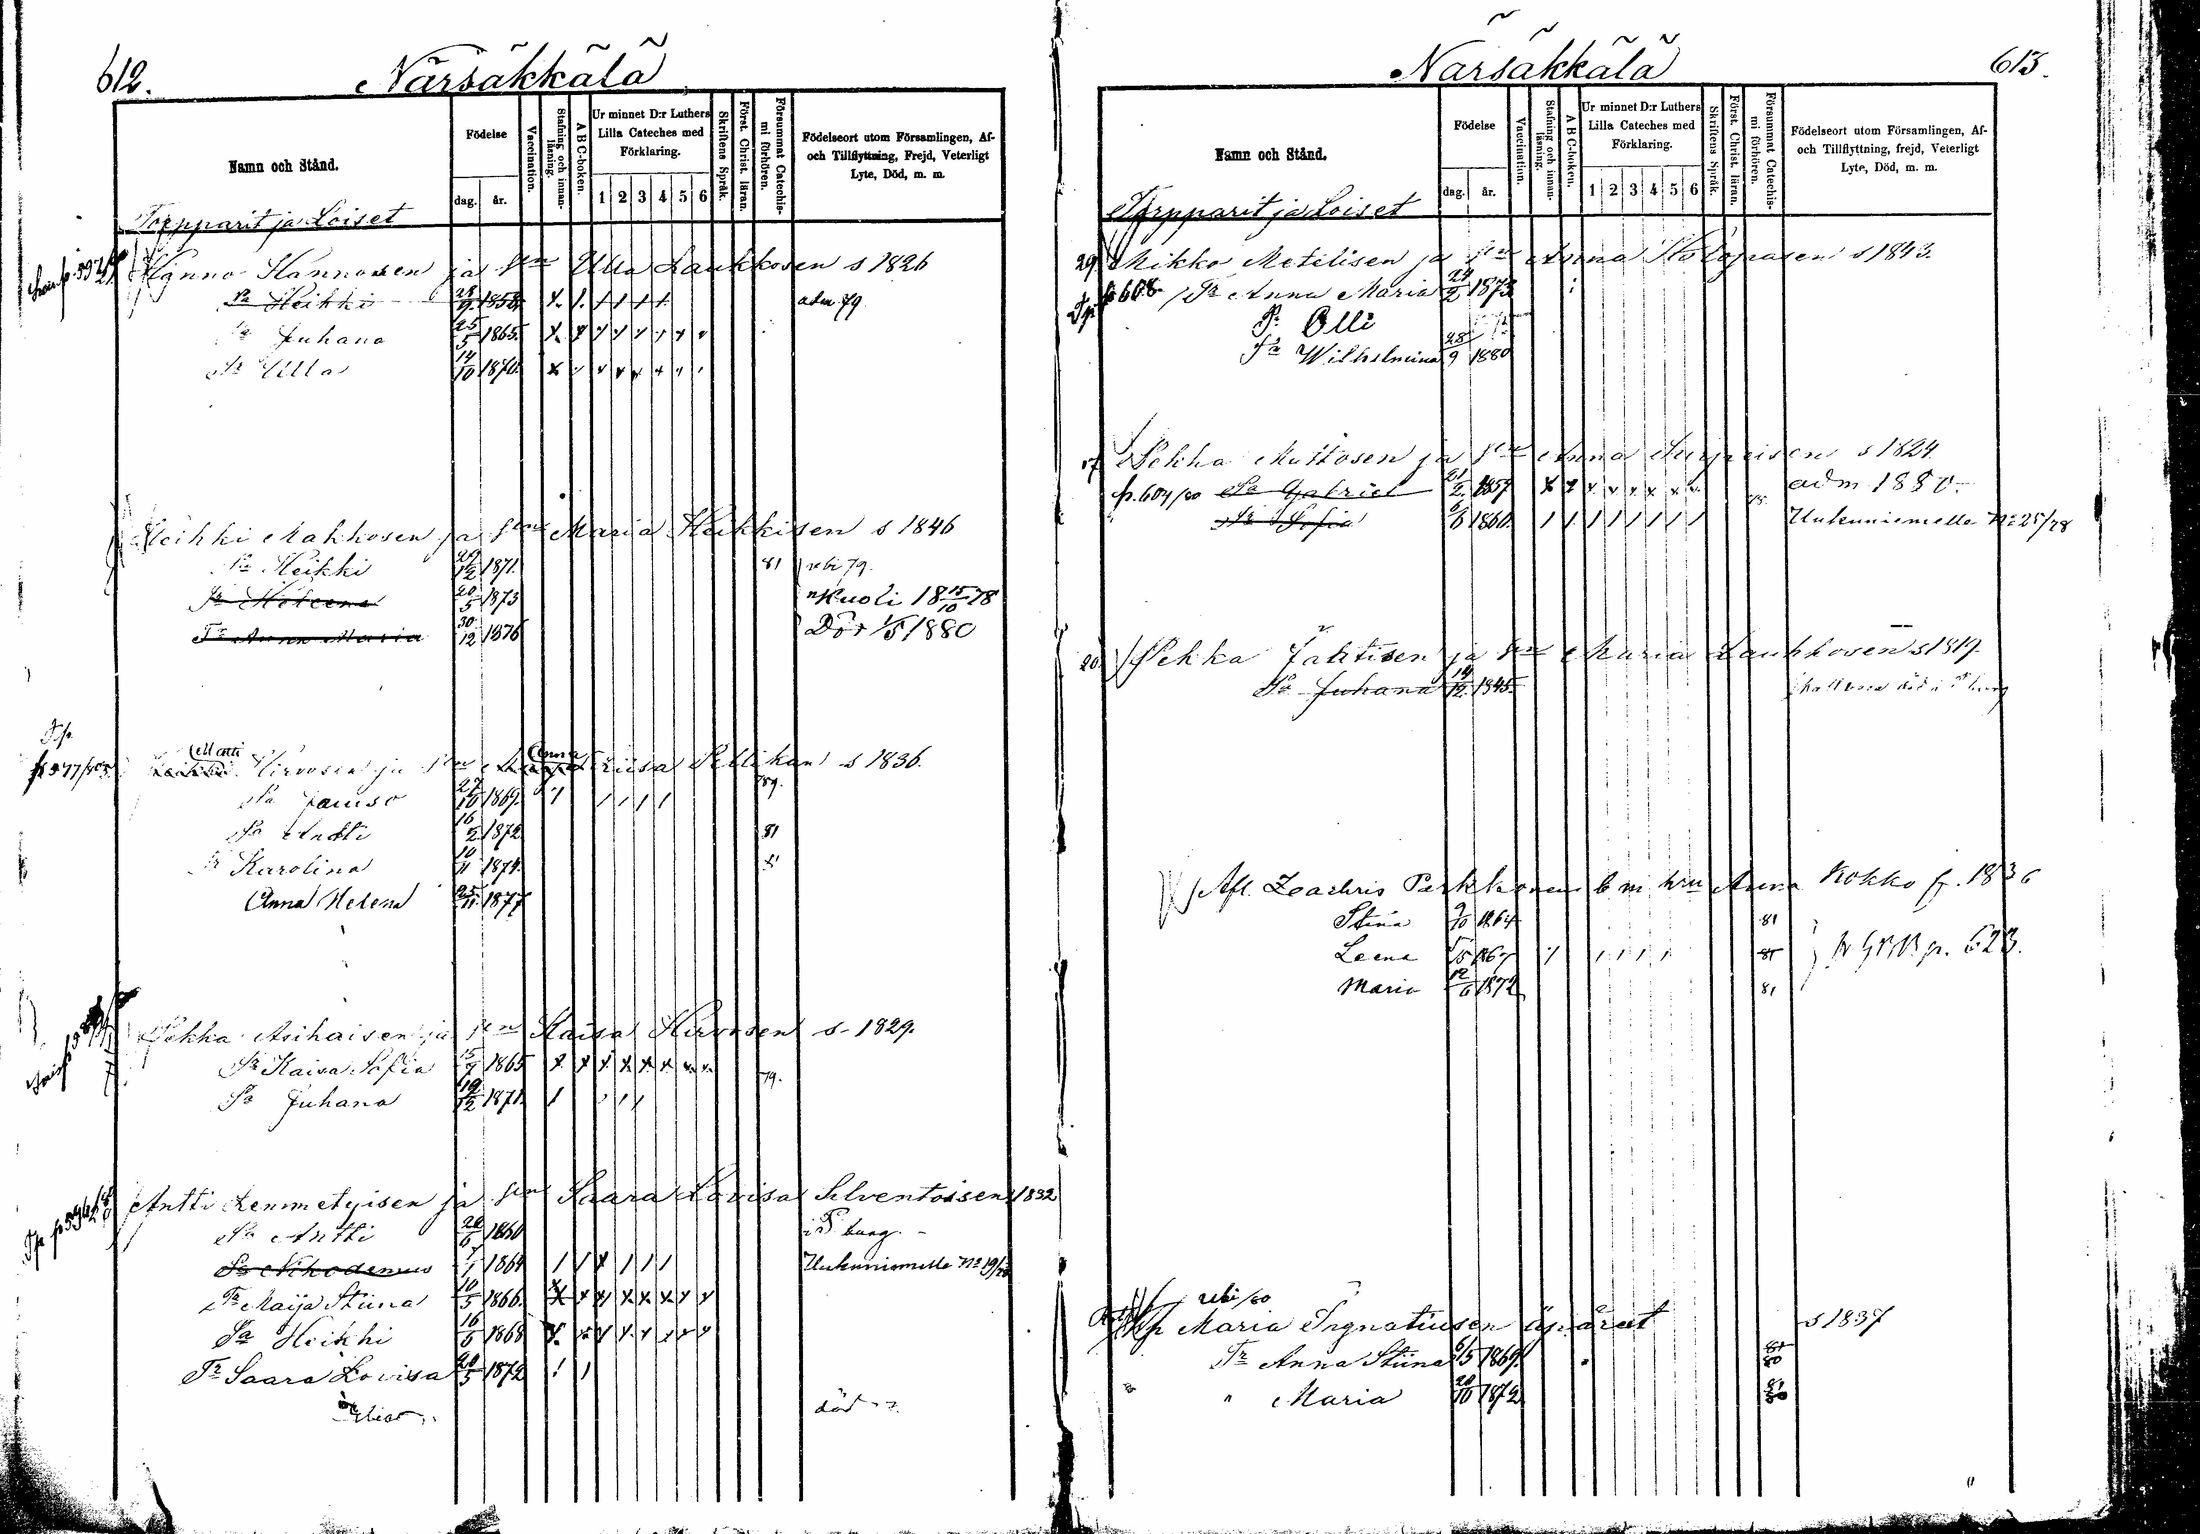 612.
Närsäkkälä
Namn och Stånd.
Födelse
dag.
år.
Vaccination.
Stafning och innan-läsning.
A B C-boken.
Ur minnet D:r Luthers Lilla Cateches med Förklaring.
1 2 3 4 5 6
Skriftens Språk.
Först. Christ. läran.
Försummat Catechis-mi förhören.
Födelseort utom Församlingen, Af- och Tillflyttning, Frejd, Veterligt Lyte, Död, m. m.
Torpparit ja Loiset
Hanno Hannosen ja Ulla Laukkosen s 1826
Pa Heikki 28/9 1858 adm 79
Pa Juhana 25/5 1865
Tr Ulla 14/10 1870
Heikki Makkosen ja Maria Heikkisen s 1846
Pa Heikki 1871 81 rebi 79.
Tr Heleena 20/5 1873 Kuoli 18 15/10 78
Tr Anna Maria 30/12 1876 Död 1/5 1880
Matti Hirvosen ja Anna Pellikan s 1836.
Pa 27/10 1869 79.
Pa Antti 16/2 1872 81
Tr Karolina 10/11 1874
Anna Helena 25/11 1877
Pekka Asikaisen ja Kaisa Hirvosen s 1829.
Tr Kaisa Sofia 15/9 1865
Pa Juhana 19/12 1871 79.
Antti Lemmetyisen ja Saara Lovisa Silventoisen 1832
Pa Antti 1860 i P burg.
Pa Nikodemus 1864 Uukuniemelle No 19/
Tr Maija Stiina 10/5 1866
Pa Heikki 16/5 1868
Tr Saara Lovisa 20/5 1872
död
613.
Närsäkkälä
Namn och Stånd.
Födelse
dag.
år.
Vaccination.
Stafning och innan-läsning.
A B C-boken.
Ur minnet D:r Luthers Lilla Cateches med Förklaring.
1 2 3 4 5 6
Skriftens Språk.
Först. Christ. läran.
Försummat Catechis-mi förhören.
Födelseort utom Församlingen, Af- och Tillflyttning, frejd, Veterligt Lyte, Död, m. m.
Torpparit ja Loiset
29 Mikko Metelisen ja Anna Holopasen s 1843.
p 608 Tr Anna Maria 24/2 1873
Pr Olli
Tr Wilhelmina 28/9 1880
17 Pekka Muttosen ja Anna s 1824
p. 604/80 Pa Gabriel 21/2 1857 adm 1880.
Tr Sofia 1860 Uukuniemelle No 25/78
20 Pekka ja Maria Laukkosen s 1819.
Pa Juhana 14/12 1845
Afl. Zachris Parkkonen Anna Kokko f. 1836
Stina 9/10 1864 81
Leena 1867 81 p. 623.
Maria 12/6 1872 81
rebi/80
Maria Ingnatiusen äpäräät s 1837
Tr Anna Stiina 6/5 1869 81 80
" Maria 20/10 1872 81 80